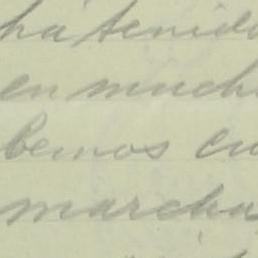 ha tenido
en much
bemos cu
marcha